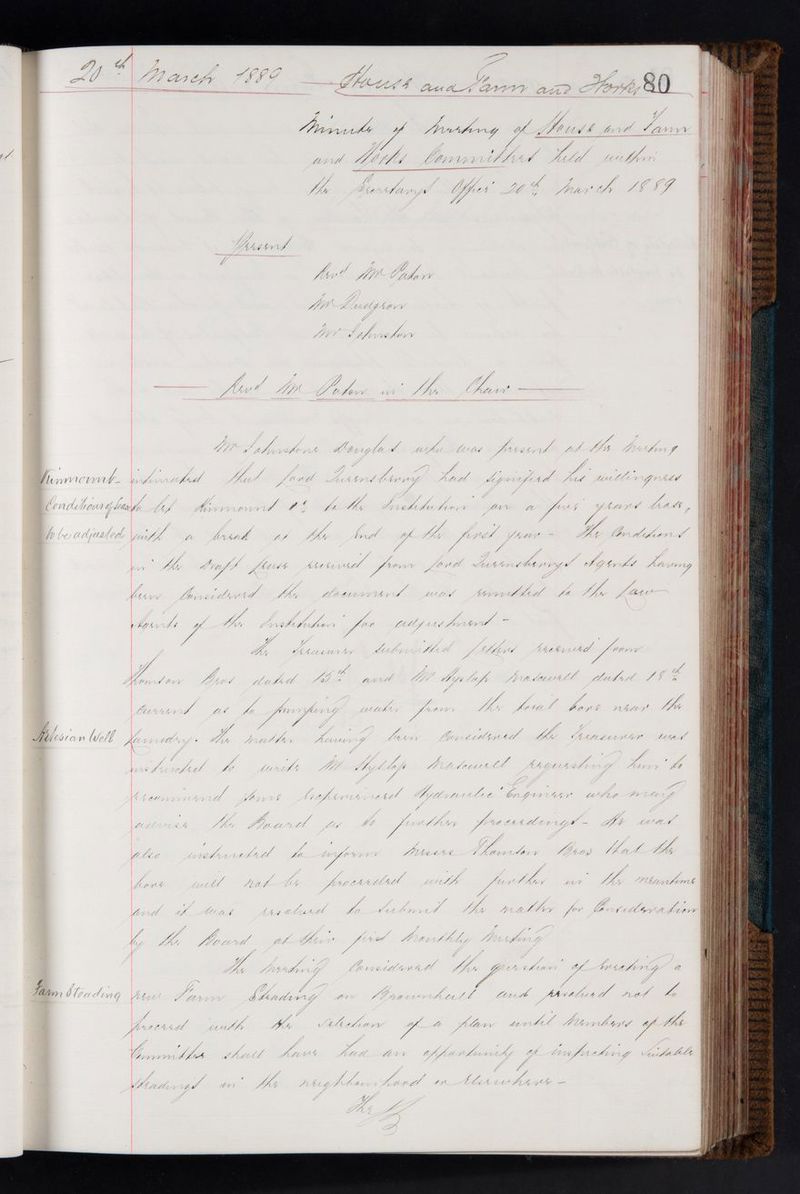 20th March 1889 House and Farm and Works 80
Minute of Meeting of House and Farm
and Works Committees held within
the Secretary's Office 20th March 1889
Present
Revd Mr Paton
Mr Dudgeon
Mr Johnston
Revd Mr Paton in the Chair
Mr Johnstone Douglas who was present at the Meeting
Kinmount intimated that Lord Queensberry had signified his willingness
Conditions of Lease to let Kinmount to the Institution on a five years lease,
to be adjusted with a break at the End of the first year - The Conditions
in the Draft Lease received from Lord Queensberry's Agents having
been Considered the document was remitted to the Law
Agents of the Institution for adjustment -
The Treasurer submitted letters received from
Thomson Bros dated 15th and Mr Hyslop Maxwell dated 18th
Current as to pumping water from the trial bore near the
Artesian Well Laundry. The matter having been Considered the Treasurer was
instructed to write Mr Hyslop Maxwell requesting him to
recommend some Experienced Hydraulic Engineer who may
advise the Board as to further proceedings - He was
also instructed to inform Messrs Thomson Bros that the
bore will not be proceeded with further in the meantime
and it was resolved to submit the matter for Consideration
by the Board at their first Monthly Meeting
The Meeting Considered the question of Erecting a
Farm Steading new Farm Steading on Brownhall and resolved not to
proceed with the selection of a plan until Members of the
Committee shall have had an opportunity of inspecting suitable
Steadings in the neighbourhood or Elsewhere -
The